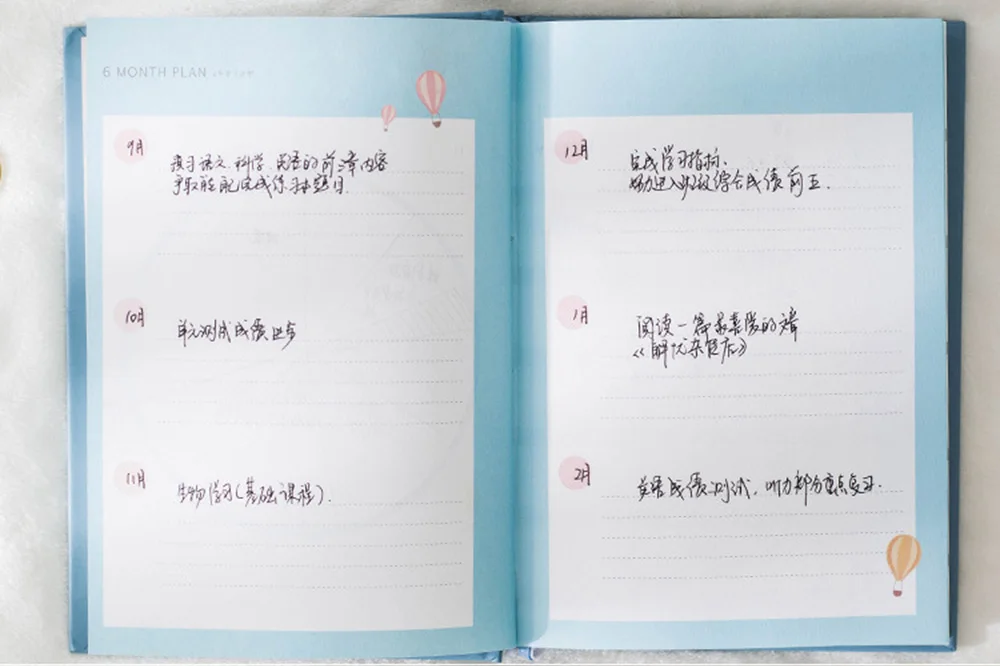 6 MONTH PLAN
9月
预习语文、科学、英语的前三章内容
争取能配完成练习题目.
10月
单元测试成绩进步
11月
生物学习(基础课程).
12月
完成学习指标、
努力进入班级综合成绩前五.
1月
阅读一篇最喜爱的文章
《解忧杂货店》
2月
英语成绩测试，听力部分重点复习.